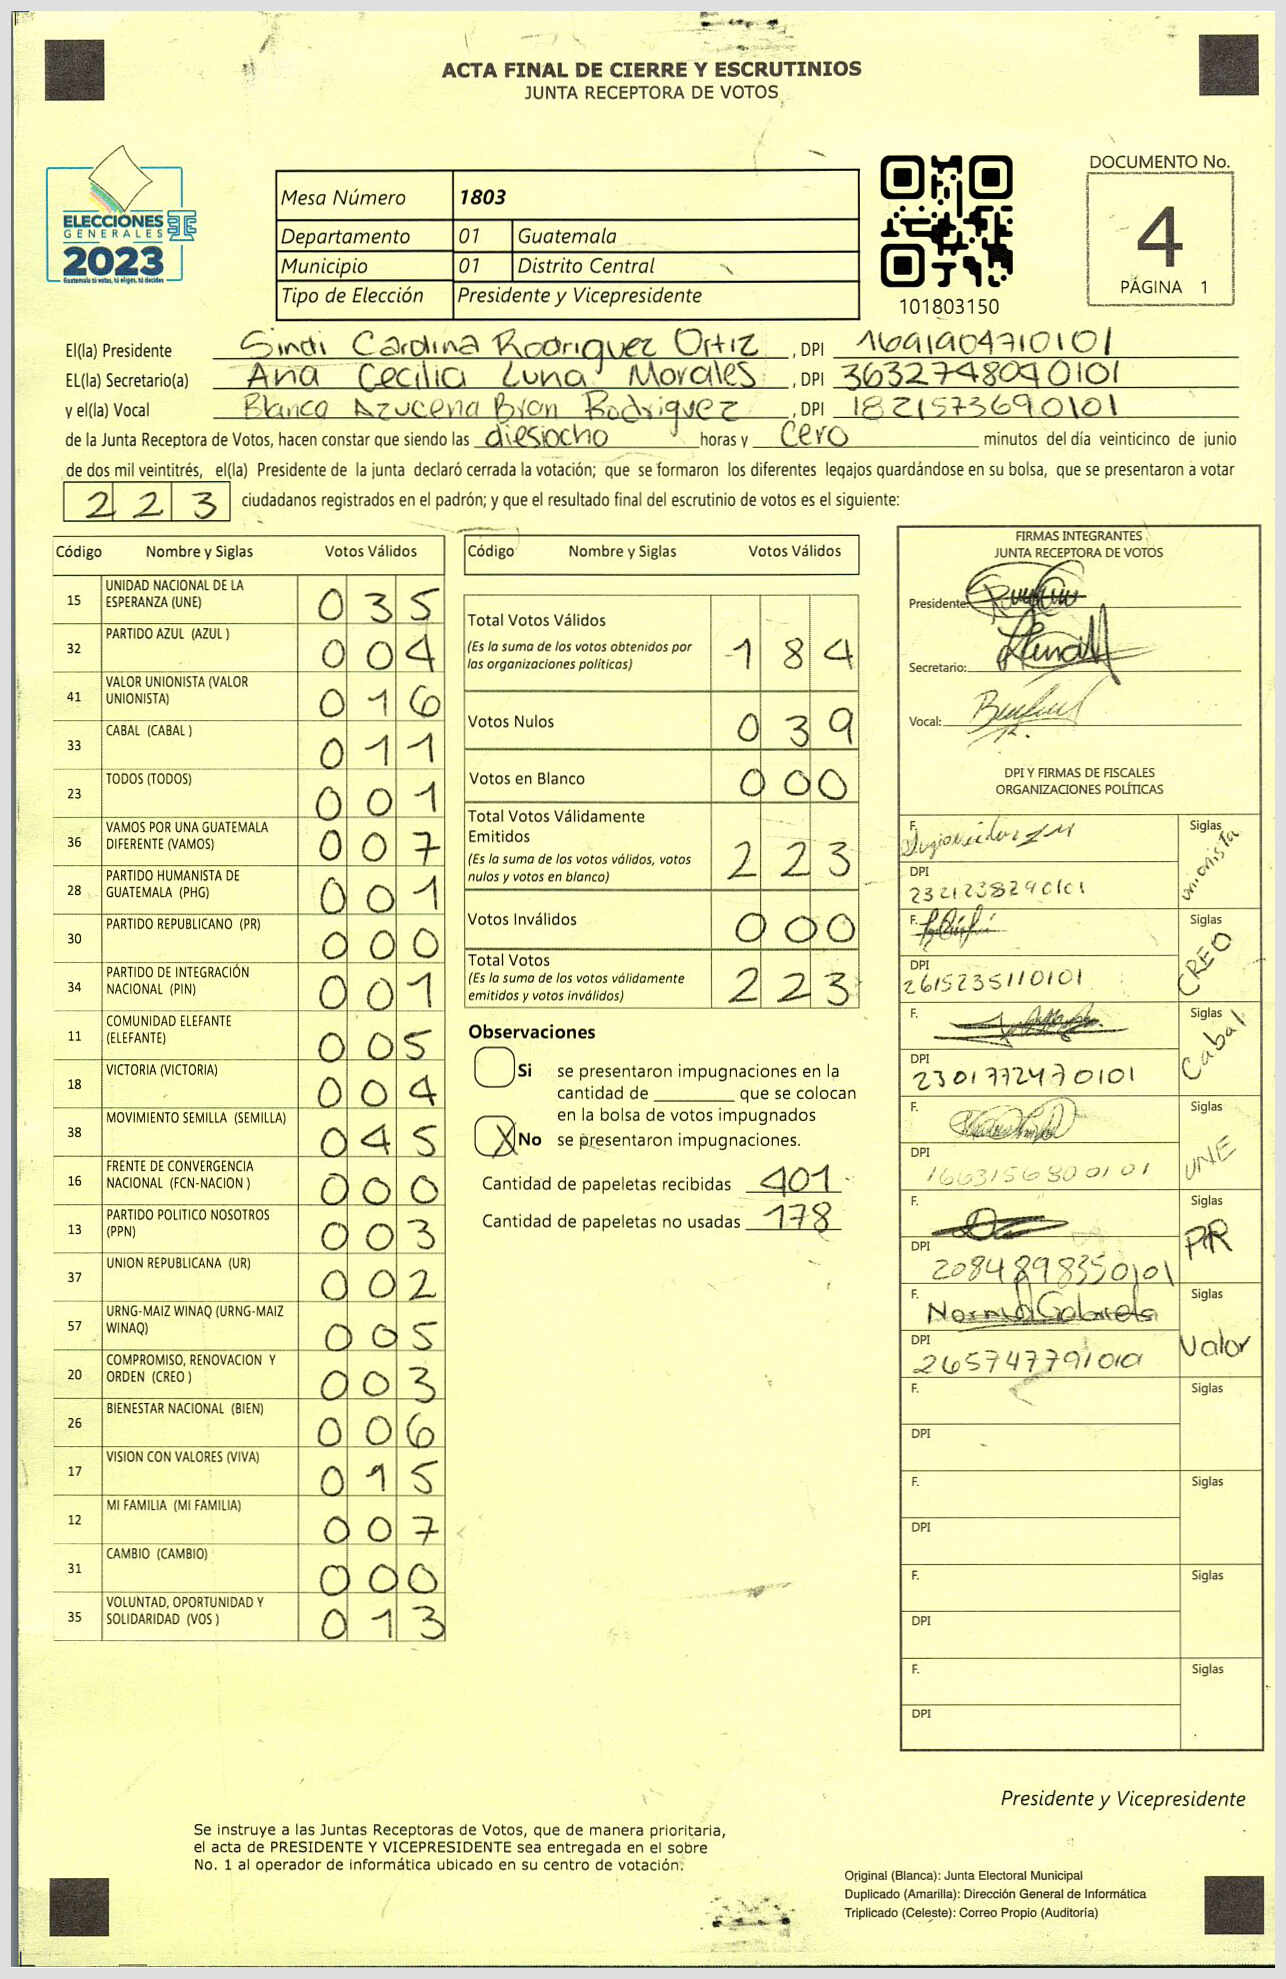 ACTA FINAL DE CIERRE Y ESCRUTINIOS
JUNTA RECEPTORA DE VOTOS
ELECCIONES
GENERALES
2023
Guatemala tú votas, tú eliges, tú decides
Mesa Número 1803
Departamento 01 Guatemala
Municipio 01 Distrito Central
Tipo de Elección Presidente y Vicepresidente
101803150
DOCUMENTO No.
4
PÁGINA 1
El(la) Presidente Sindi Carolina Rodriguez Ortiz, DPI 1691904710101
EL(la) Secretario(a) Ana Cecilia Luna Morales, DPI 3632748040101
y el(la) Vocal Blanca Azucena Bran Rodriguez, DPI 1821573690101
de la Junta Receptora de Votos, hacen constar que siendo las diesiocho horas y cero minutos del día veinticinco de junio
de dos mil veintitrés, el(la) Presidente de la junta declaró cerrada la votación; que se formaron los diferentes legajos guardándose en su bolsa, que se presentaron a votar
223 ciudadanos registrados en el padrón; y que el resultado final del escrutinio de votos es el siguiente:
Código Nombre y Siglas Votos Válidos
15 UNIDAD NACIONAL DE LA ESPERANZA (UNE) 035
32 PARTIDO AZUL (AZUL ) 004
41 VALOR UNIONISTA (VALOR UNIONISTA) 016
33 CABAL (CABAL ) 011
23 TODOS (TODOS) 001
36 VAMOS POR UNA GUATEMALA DIFERENTE (VAMOS) 007
28 PARTIDO HUMANISTA DE GUATEMALA (PHG) 001
30 PARTIDO REPUBLICANO (PR) 000
34 PARTIDO DE INTEGRACIÓN NACIONAL (PIN) 001
11 COMUNIDAD ELEFANTE (ELEFANTE) 005
18 VICTORIA (VICTORIA) 004
38 MOVIMIENTO SEMILLA (SEMILLA) 045
16 FRENTE DE CONVERGENCIA NACIONAL (FCN-NACION ) 000
13 PARTIDO POLITICO NOSOTROS (PPN) 003
37 UNION REPUBLICANA (UR) 002
57 URNG-MAIZ WINAQ (URNG-MAIZ WINAQ) 005
20 COMPROMISO, RENOVACION Y ORDEN (CREO ) 003
26 BIENESTAR NACIONAL (BIEN) 006
17 VISION CON VALORES (VIVA) 015
12 MI FAMILIA (MI FAMILIA) 007
31 CAMBIO (CAMBIO) 000
35 VOLUNTAD, OPORTUNIDAD Y SOLIDARIDAD (VOS ) 013
Código Nombre y Siglas Votos Válidos
Total Votos Válidos 184
(Es la suma de los votos obtenidos por
las organizaciones políticas)
Votos Nulos 039
Votos en Blanco 000
Total Votos Válidamente
Emitidos 223
(Es la suma de los votos válidos, votos
nulos y votos en blanco)
Votos Inválidos 000
Total Votos 223
(Es la suma de los votos válidamente
emitidos y votos inválidos)
Observaciones
Si se presentaron impugnaciones en la
cantidad de ________ que se colocan
en la bolsa de votos impugnados
X No se presentaron impugnaciones.
Cantidad de papeletas recibidas 401
Cantidad de papeletas no usadas 178
FIRMAS INTEGRANTES
JUNTA RECEPTORA DE VOTOS
Presidente:
Secretario:
Vocal:
DPI Y FIRMAS DE FISCALES
ORGANIZACIONES POLÍTICAS
F. Siglas unionista
DPI 2321238290101
F. Siglas CREO
DPI 2615235110101
F. Siglas Cabal
DPI 2301772470101
F. Siglas UNE
DPI 1663156800101
F. Siglas PR
DPI 2084898350101
F. Norma Gabriela Siglas Valor
DPI
F. Siglas
DPI
F. Siglas
DPI
F. Siglas
DPI
F. Siglas
DPI
Presidente y Vicepresidente
Se instruye a las Juntas Receptoras de Votos, que de manera prioritaria,
el acta de PRESIDENTE Y VICEPRESIDENTE sea entregada en el sobre
No. 1 al operador de informática ubicado en su centro de votación.
Original (Blanca): Junta Electoral Municipal
Duplicado (Amarilla): Dirección General de Informática
Triplicado (Celeste): Correo Propio (Auditoría)